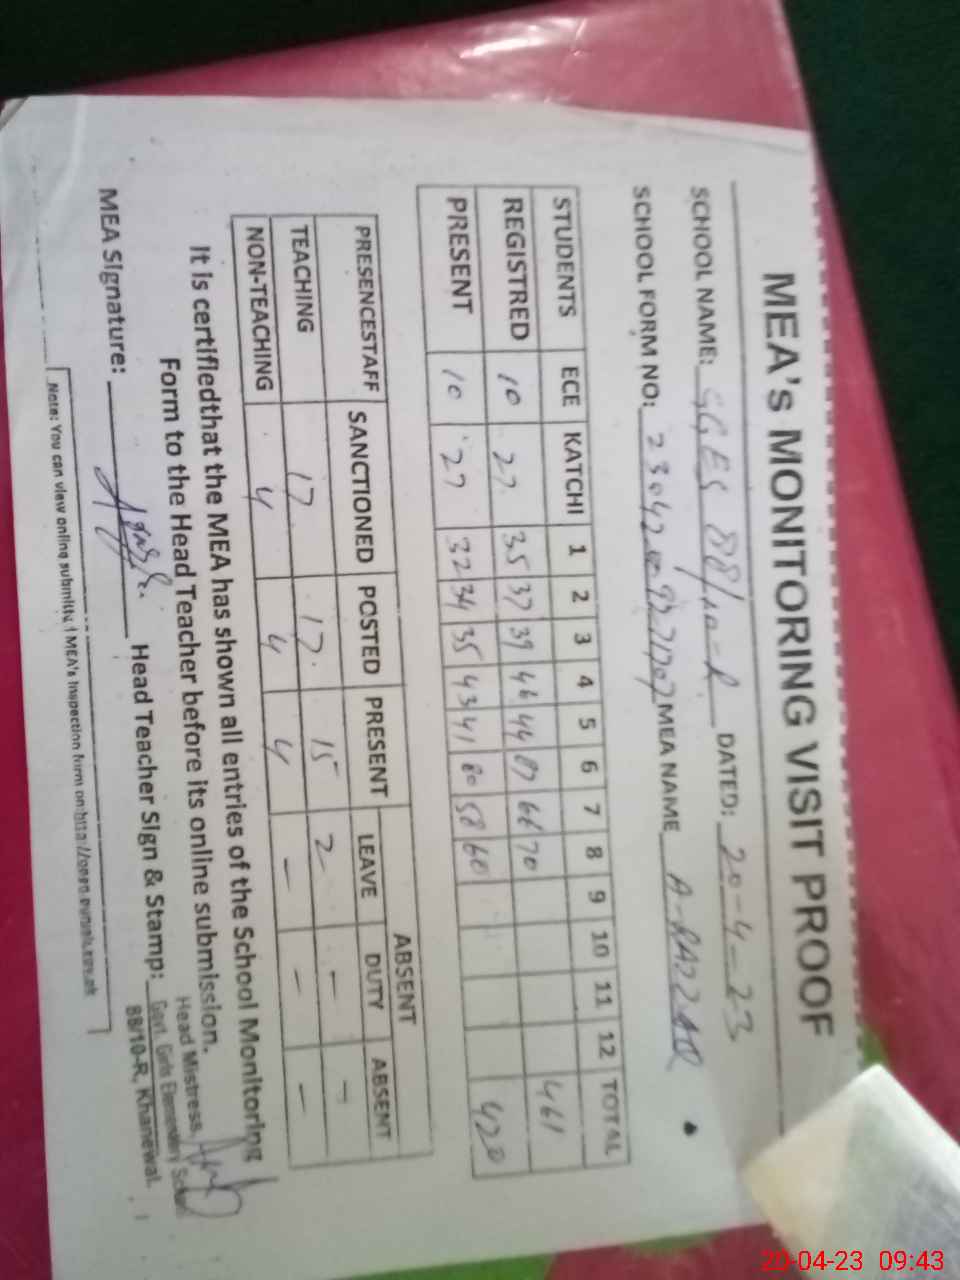 MEA's MONITORING VISIT PROOF
SCHOOL NAME: GGES 88/10-R DATED: 20-4-23
SCHOOL FORM NO: MEA NAME A-RAZZAQ
STUDENTS ECE KATCHI 1 2 3 4 5 6 7 8 9 10 11 12 TOTAL
REGISTRED 10 27 35 37 39 46 44 87 66 70 461
PRESENT 10 27 32 34 35 43 41 80 58 60 420
ABSENT
PRESENCESTAFF SANCTIONED POSTED PRESENT LEAVE DUTY ABSENT
TEACHING 17 17 15 2 - -
NON-TEACHING 4 4 4 - - -
It is certifiedthat the MEA has shown all entries of the School Monitoring
Form to the Head Teacher before its online submission.
MEA Signature: Head Teacher Sign & Stamp:
Head Mistress
Govt. Girls Elementary School
88/10-R, Khanewal.
Note: You can view online submitted MEA's Inspection form on:
20-04-23 09:43